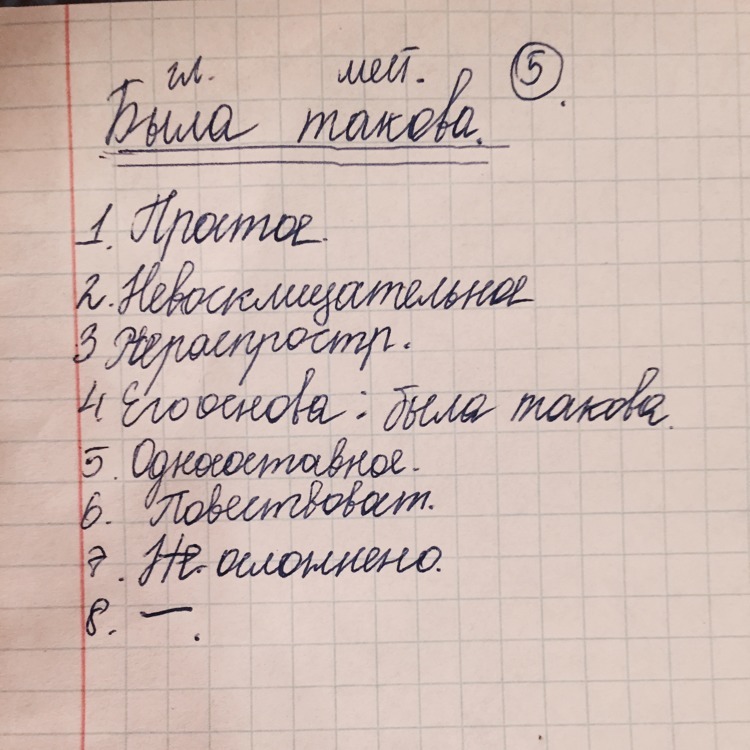 гл. мест. 5
Была такова.
1. Простое.
2. Невосклицательное
3 Нераспростр.
4. Его основа: была такова.
5. Односоставное.
6. Повествоват.
7. Не осложнено.
8. —.